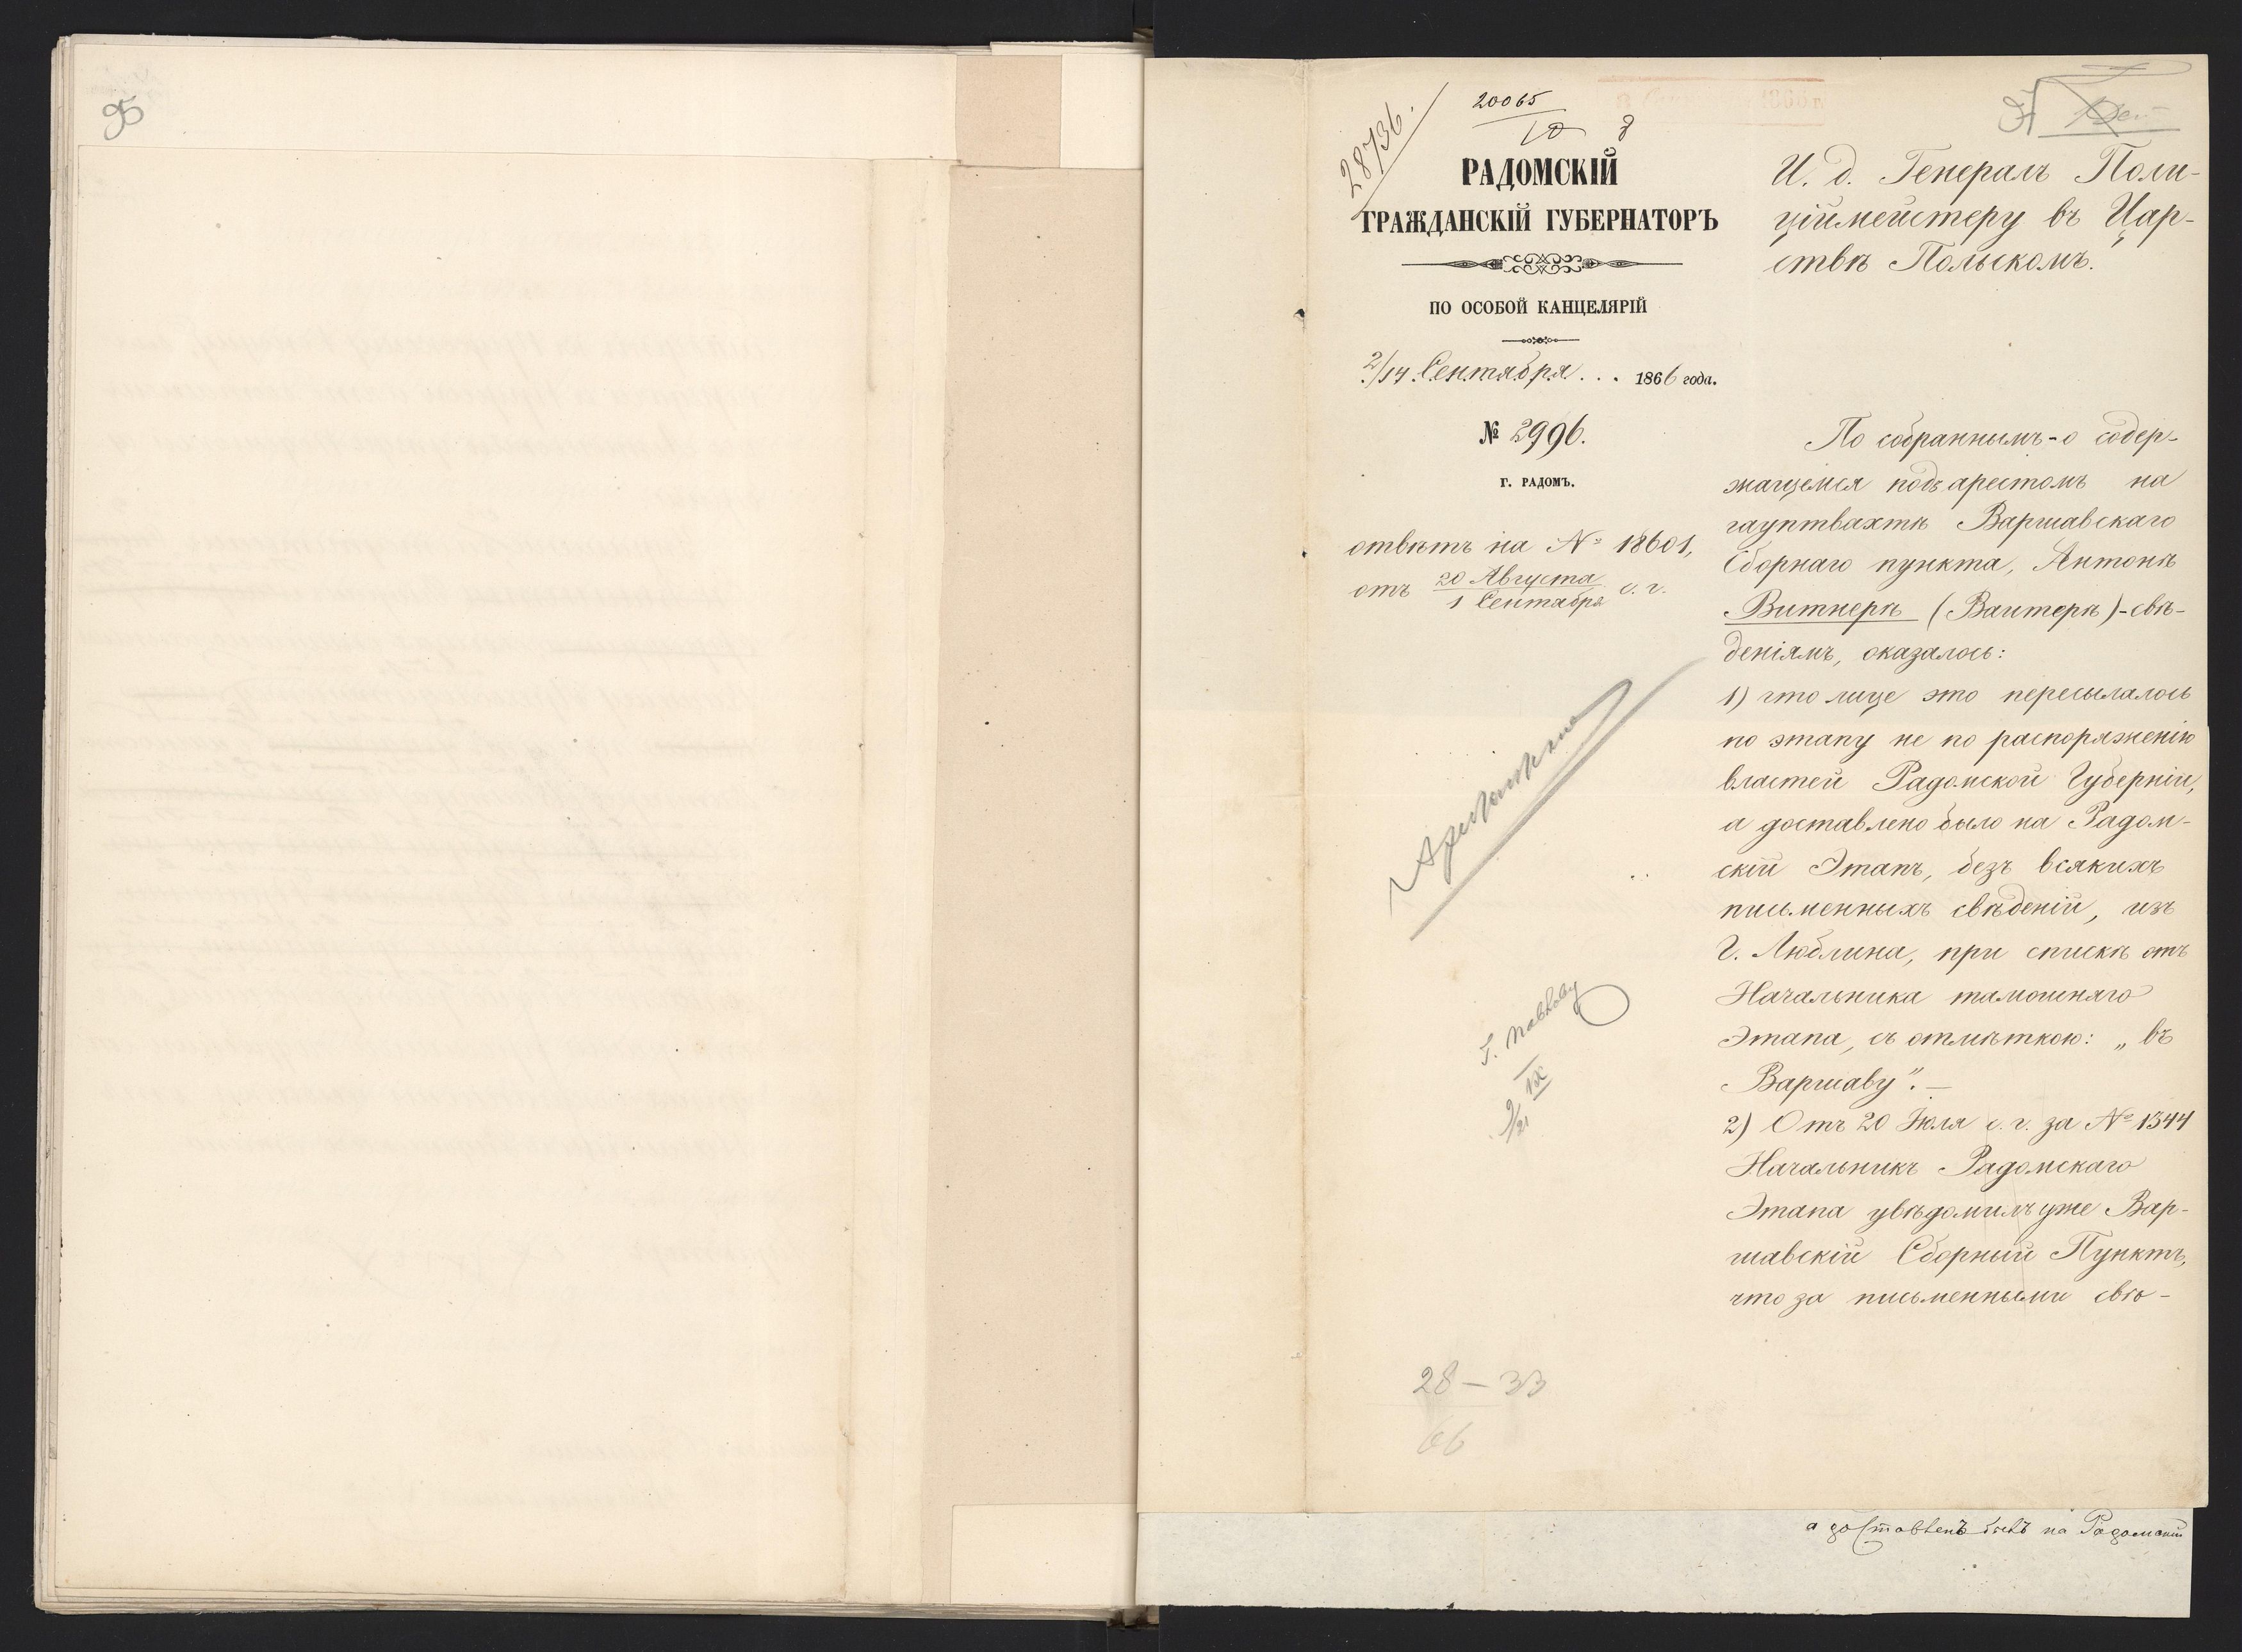 95
28736.
20065
10 8
97
РАДОМСКІЙ
ГРАЖДАНСКІЙ ГУБЕРНАТОРЪ
ПО ОСОБОЙ КАНЦЕЛЯРІЙ
2/14 Сентября 1866 года.
№ 2996.
Г. РАДОМЪ.
отвѣтъ на № 18601,
отъ 20 Августа / 1 Сентября с. г.
И. д. Генералъ Поли-
ціймейстеру въ Цар-
ствѣ Польскомъ.
По собраннымъ-о содер-
жащемся подъ арестомъ на
гауптвахтѣ Варшавскаго
Сборнаго пункта, Антонѣ
Витнерѣ (Ваитерѣ)-свѣ-
деніямъ, оказалось:
1) что лице это пересылалось
по этапу не по распоряженію
властей Радомской Губерніи,
а доставлено было на Радом-
скій Этапъ, безъ всякихъ
письменныхъ свѣденій, изъ
Г. Люблина, при спискѣ отъ
Начальника тамошняго
Этапа, съ отмѣткою: „въ
Варшаву".—
2) Отъ 20 Іюля с. г. за № 1344
Начальникъ Радомскаго
Этапа увѣдомилъ уже Вар-
шавскій Сборный Пунктъ,
что за письменными свѣ-
Г. Павлову
9/21 IX
28 — 33
66
а доставленъ былъ на Радомскій